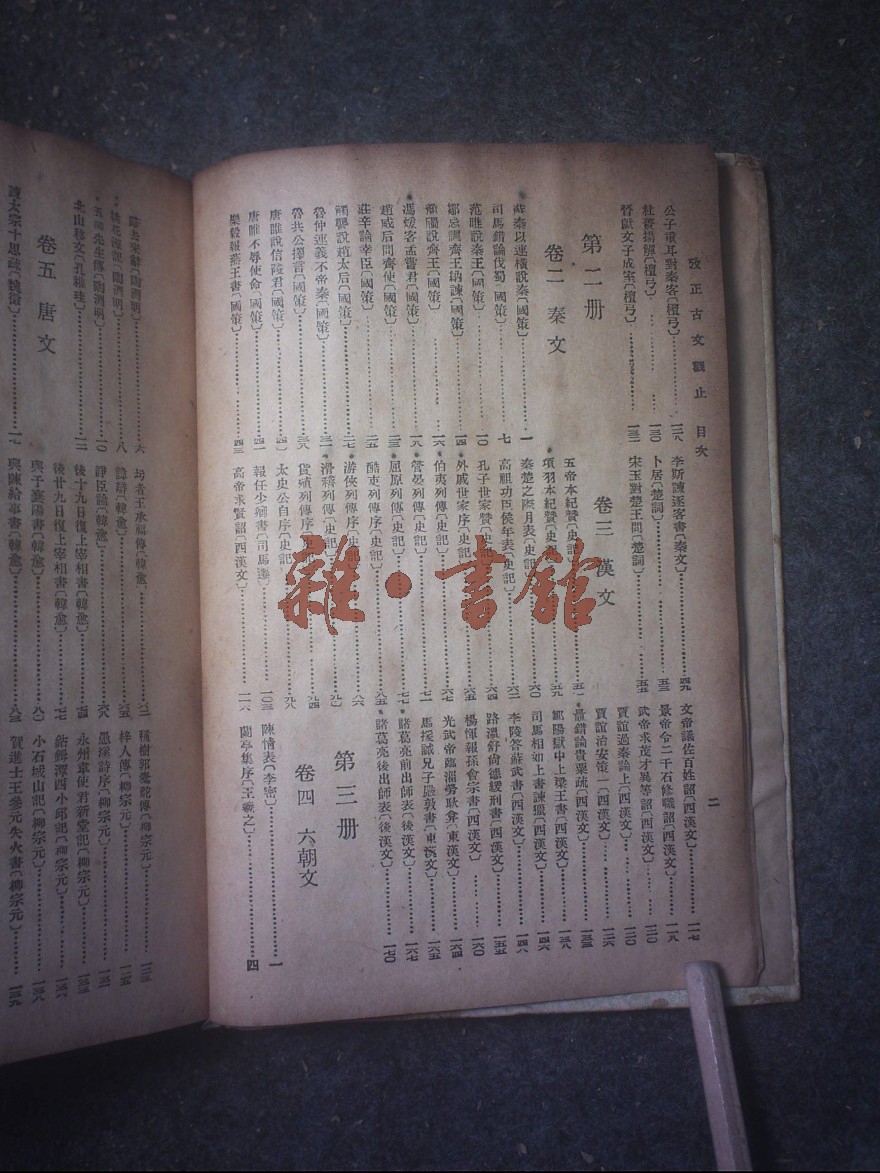 攷正古文觀止 目次
二
公子重耳對秦客〔檀弓〕 一二八
杜蕢揚觶〔檀弓〕 一三〇
晉獻文子成室〔檀弓〕 一三二
第二册
卷二 秦文
蘇秦以連橫說秦〔國策〕 一
司馬錯論伐蜀〔國策〕 七
范雎說秦王〔國策〕 一〇
鄒忌諷齊王納諫〔國策〕 一四
顏斶說齊王〔國策〕
馮煖客孟嘗君〔國策〕 一八
趙威后問齊使〔國策〕 二三
莊辛論幸臣〔國策〕 二五
觸讋說趙太后〔國策〕 二七
魯仲連義不帝秦〔國策〕 三一
魯共公擇言〔國策〕 三八
唐雎說信陵君〔國策〕 四〇
唐雎不辱使命〔國策〕 四一
樂毅報燕王書〔國策〕 四三
李斯諫逐客書〔秦文〕 四九
卜居〔楚詞〕 五三
宋玉對楚王問〔楚詞〕 五五
卷三 漢文
五帝本紀贊〔史記〕
項羽本紀贊〔史記〕
秦楚之際月表〔史記〕 六〇
高祖功臣侯年表〔史記〕 六二
孔子世家贊〔史記〕 六四
外戚世家序〔史記〕
伯夷列傳〔史記〕 六七
管晏列傳〔史記〕 七一
屈原列傳〔史記〕 七七
酷吏列傳序〔史記〕 八五
游俠列傳序〔史記〕 八六
滑稽列傳〔史記〕 九〇
貨殖列傳序〔史記〕 九四
太史公自序〔史記〕 九八
報任少卿書〔司馬遷〕 一〇三
高帝求賢詔〔西漢文〕 一一六
文帝議佐百姓詔〔西漢文〕 一一七
景帝令二千石修職詔〔西漢文〕 一一八
武帝求茂才異等詔〔西漢文〕 一二〇
賈誼過秦論上〔西漢文〕 一二〇
賈誼治安策一〔西漢文〕 一二六
鼂錯論貴粟疏〔西漢文〕 一三三
鄒陽獄中上梁王書〔西漢文〕 一三八
司馬相如上書諫獵〔西漢文〕 一四六
李陵答蘇武書〔西漢文〕 一四八
路溫舒尚德緩刑書〔西漢文〕 一五五
楊惲報孫會宗書〔西漢文〕 一六〇
光武帝臨淄勞耿弇〔東漢文〕 一六四
馬援誡兄子嚴敦書〔東漢文〕 一六五
諸葛亮前出師表〔後漢文〕 一六七
諸葛亮後出師表〔後漢文〕 一七〇
第三册
卷四 六朝文
陳情表〔李密〕 一
蘭亭集序〔王羲之〕 四
歸去來辭〔陶淵明〕 六
桃花源記〔陶淵明〕 八
五柳先生傳〔陶淵明〕 一〇
北山移文〔孔稚珪〕 一二
卷五 唐文
諫太宗十思疏〔魏徵〕 一七
圬者王承福傳〔韓愈〕 六二
諱辯〔韓愈〕 六五
諍臣論〔韓愈〕 六八
後十九日復上宰相書〔韓愈〕 七四
後廿九日復上宰相書〔韓愈〕 七七
與于襄陽書〔韓愈〕 八〇
與陳給事書〔韓愈〕 八三
種樹郭橐駝傳〔柳宗元〕 一二三
梓人傳〔柳宗元〕 一二五
愚溪詩序〔柳宗元〕 一三一
永州韋使君新堂記〔柳宗元〕 一三三
鈷鉧潭西小邱記〔柳宗元〕 一三六
小石城山記〔柳宗元〕 一三八
賀進士王參元失火書〔柳宗元〕 一三九
雜·書館